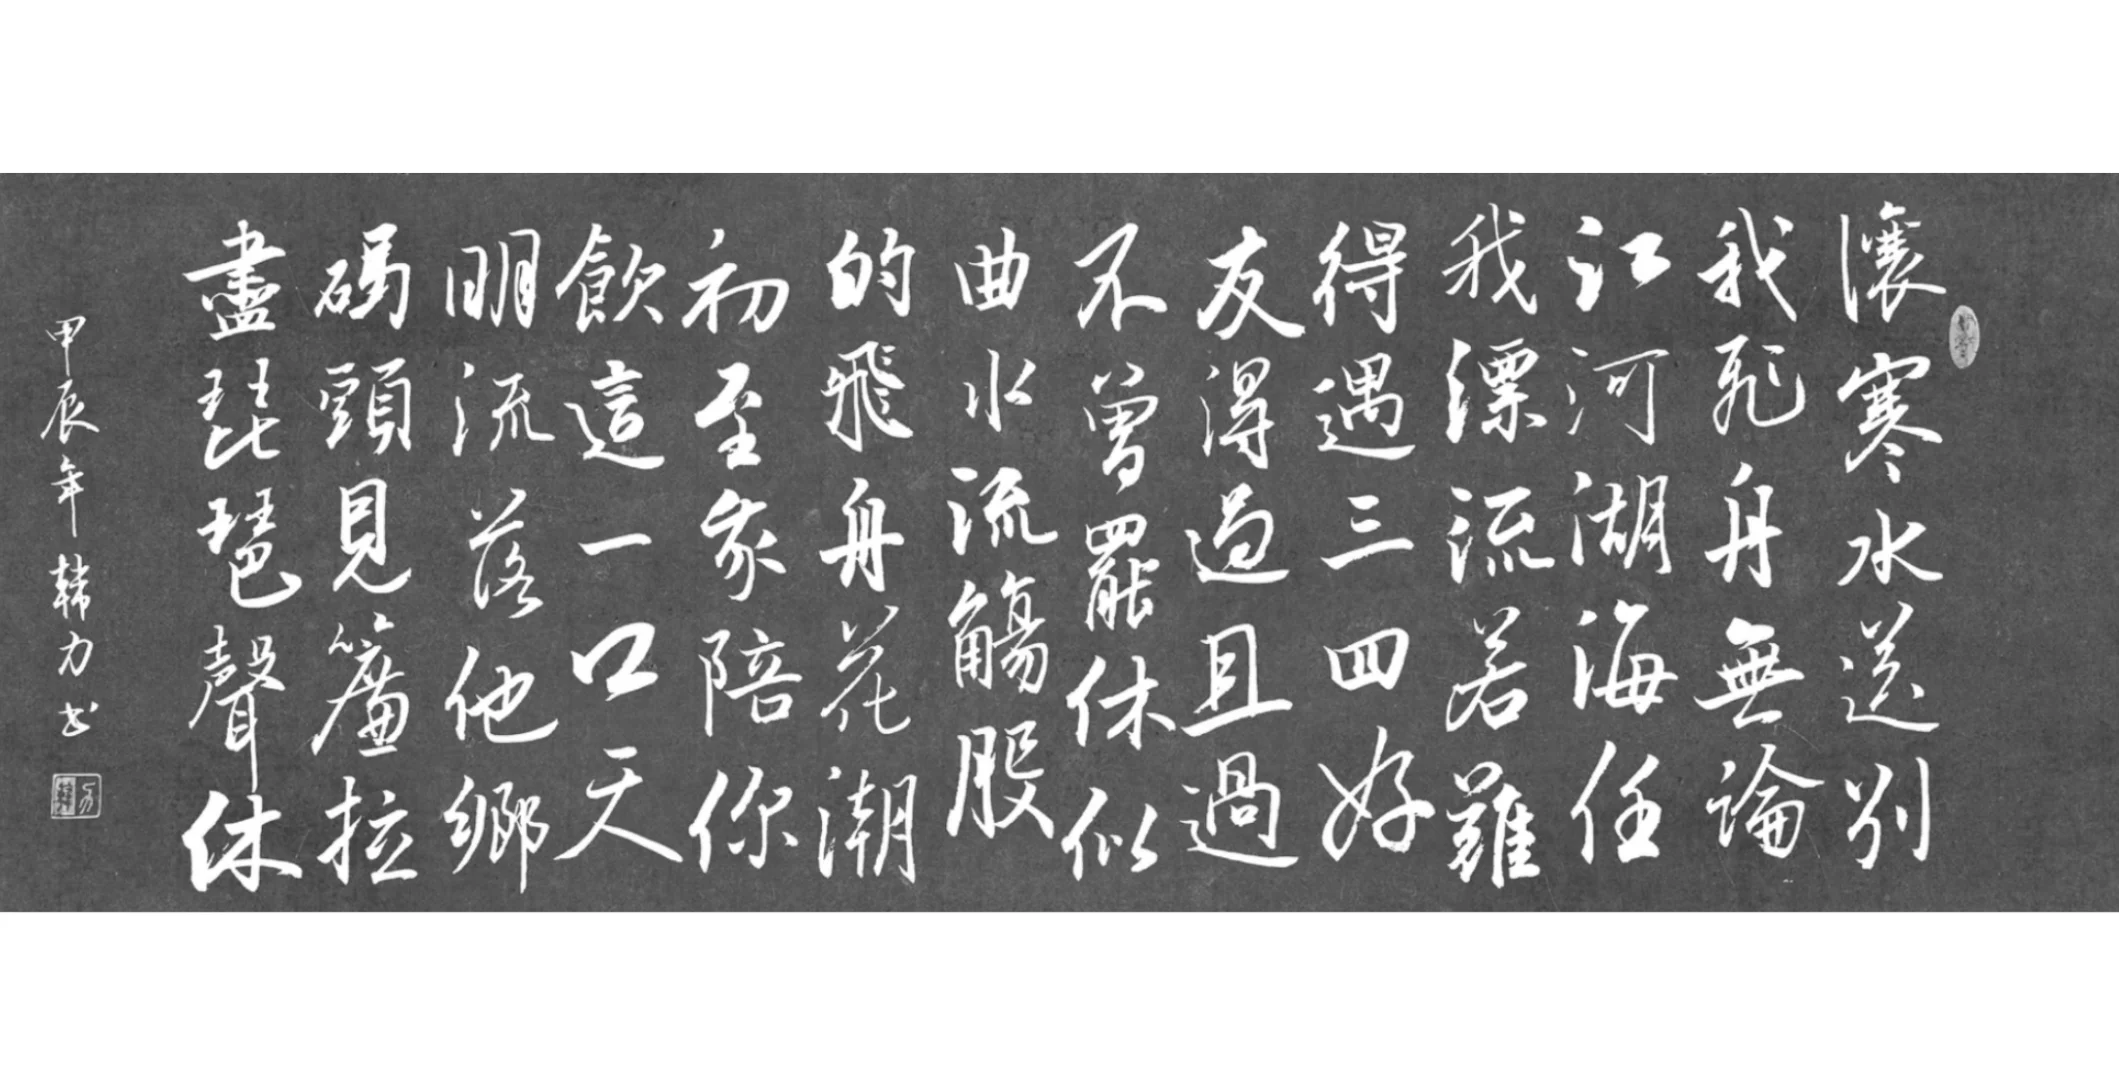 瀼寒水送别
我飛舟無論
江河湖海任
我漂流若難
得遇三四好
友得過且過
不曾罷休似
曲水流觴股
的飛舟花潮
初至家陪你
飲這一口天
明流落他鄉
碼頭見簾拉
盡琵琶聲休
甲辰年韓力书